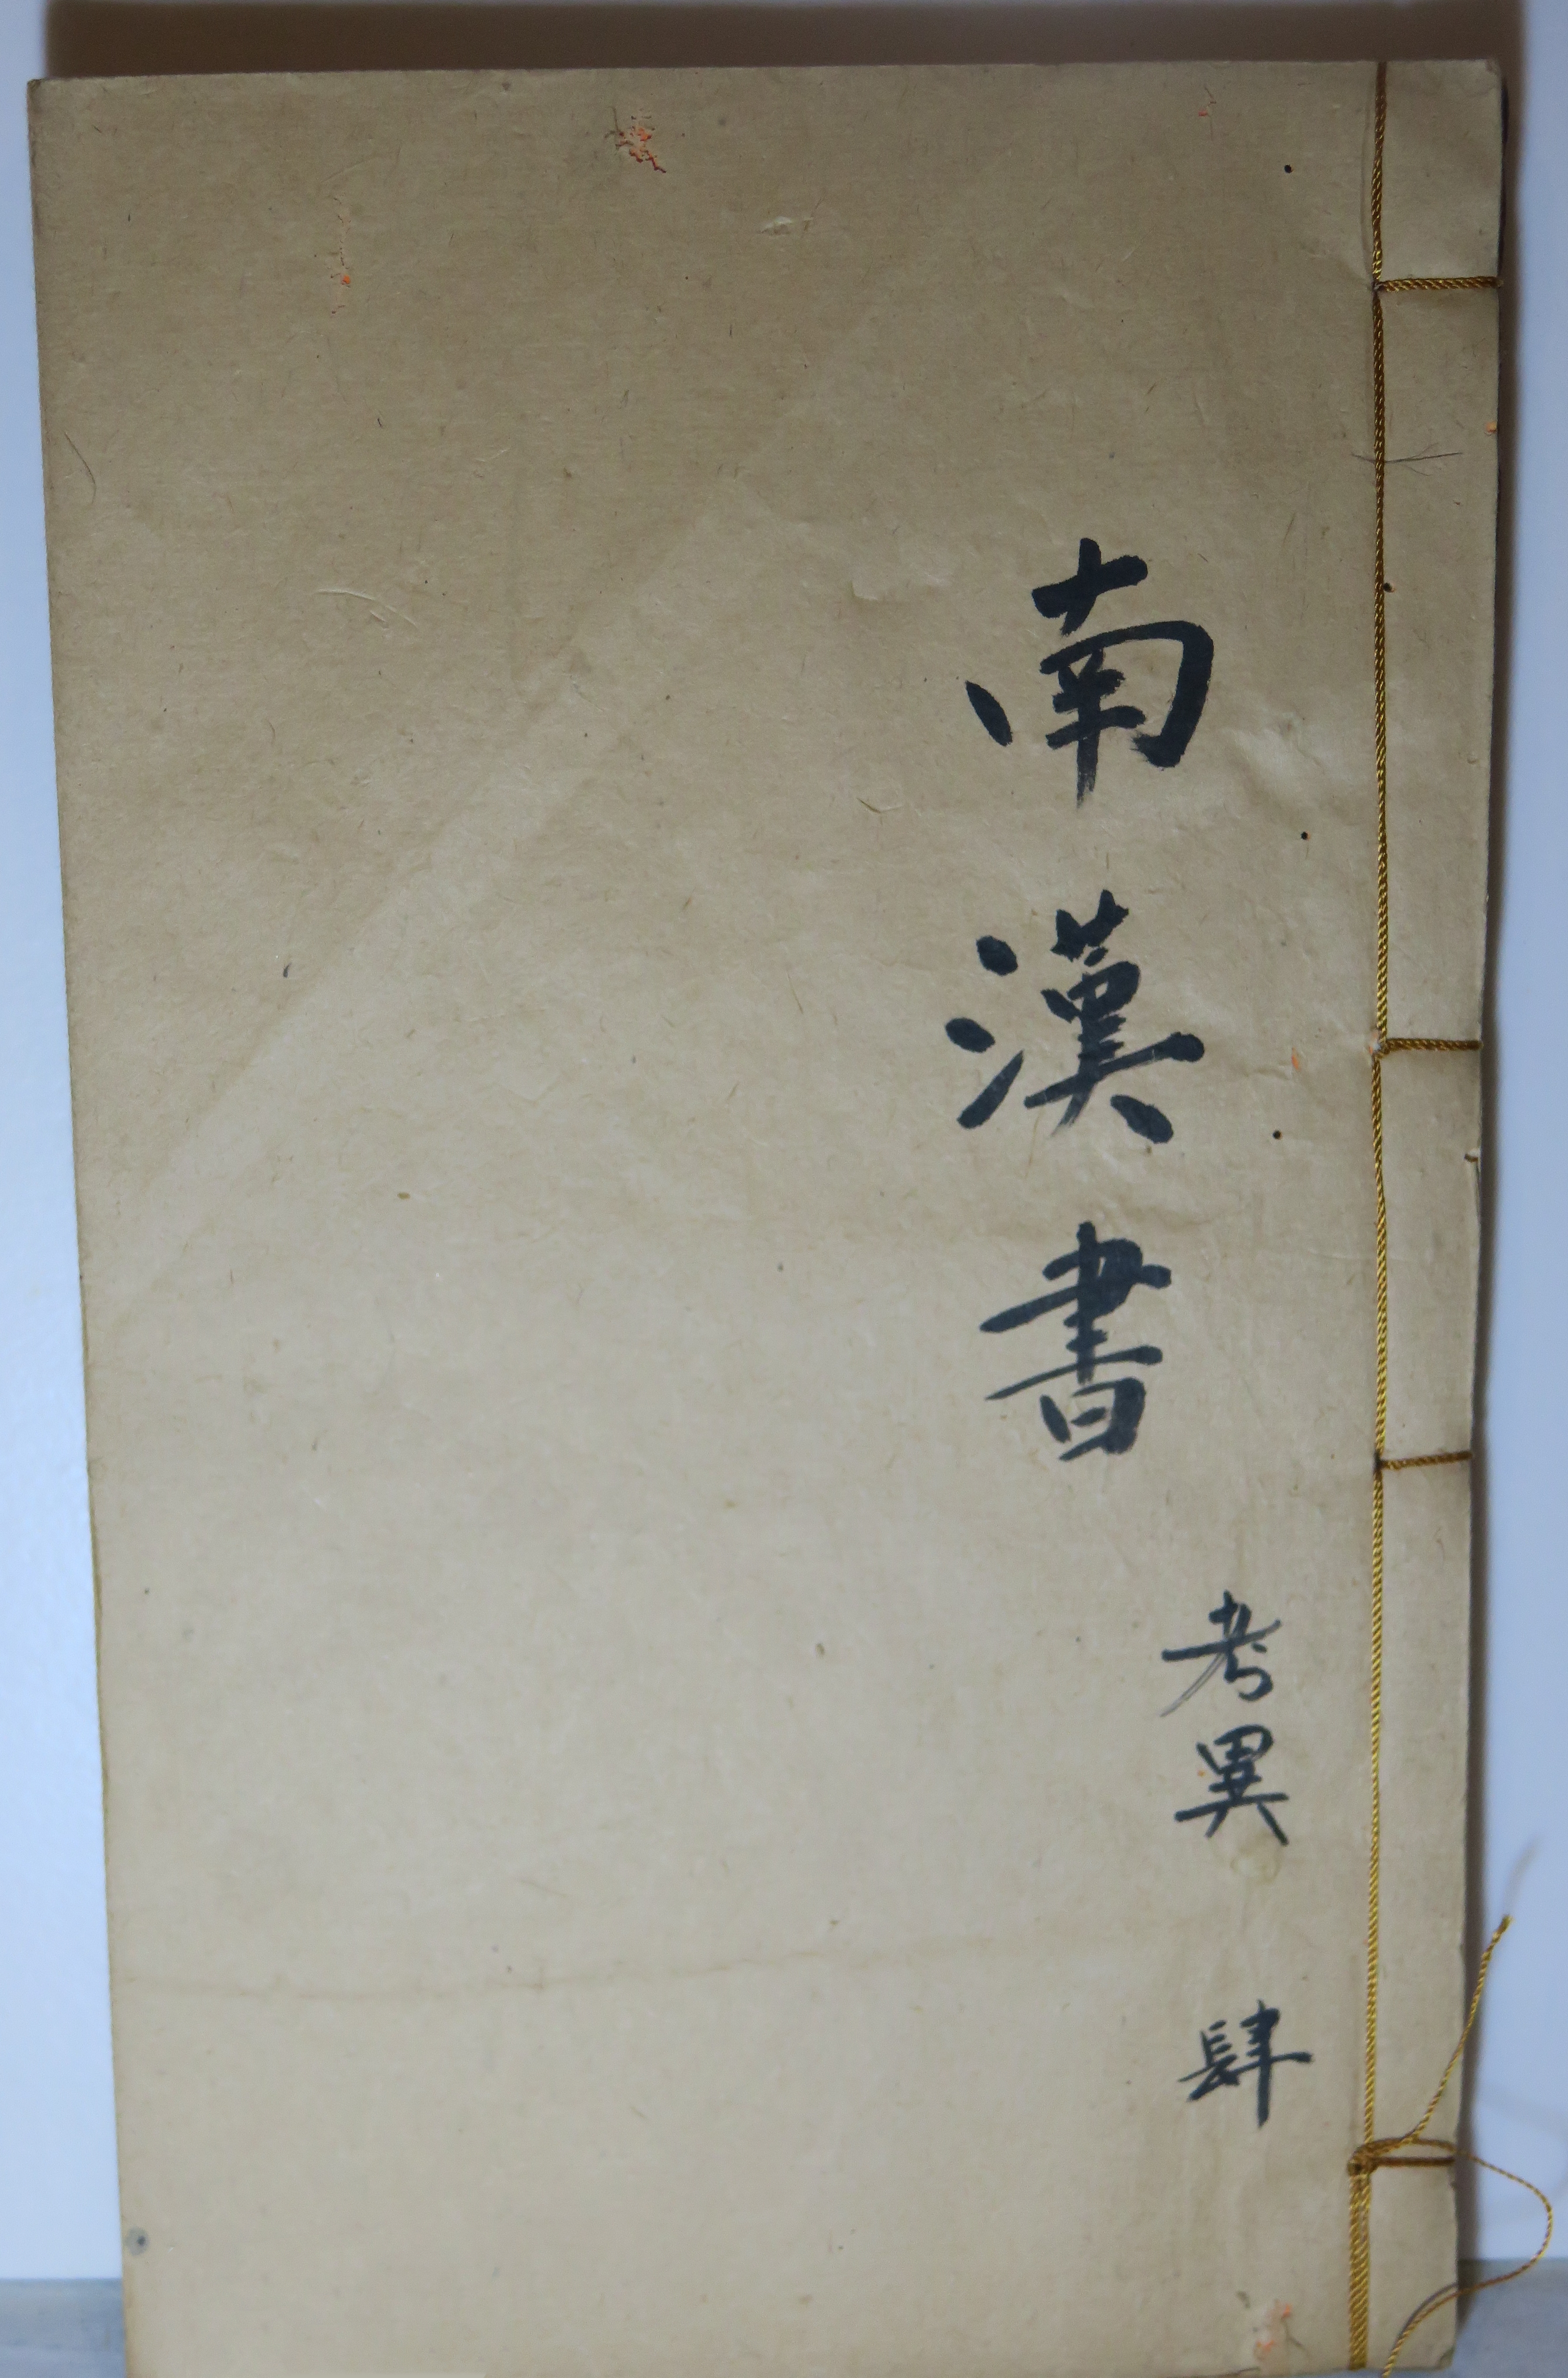 南漢書
考異
肆